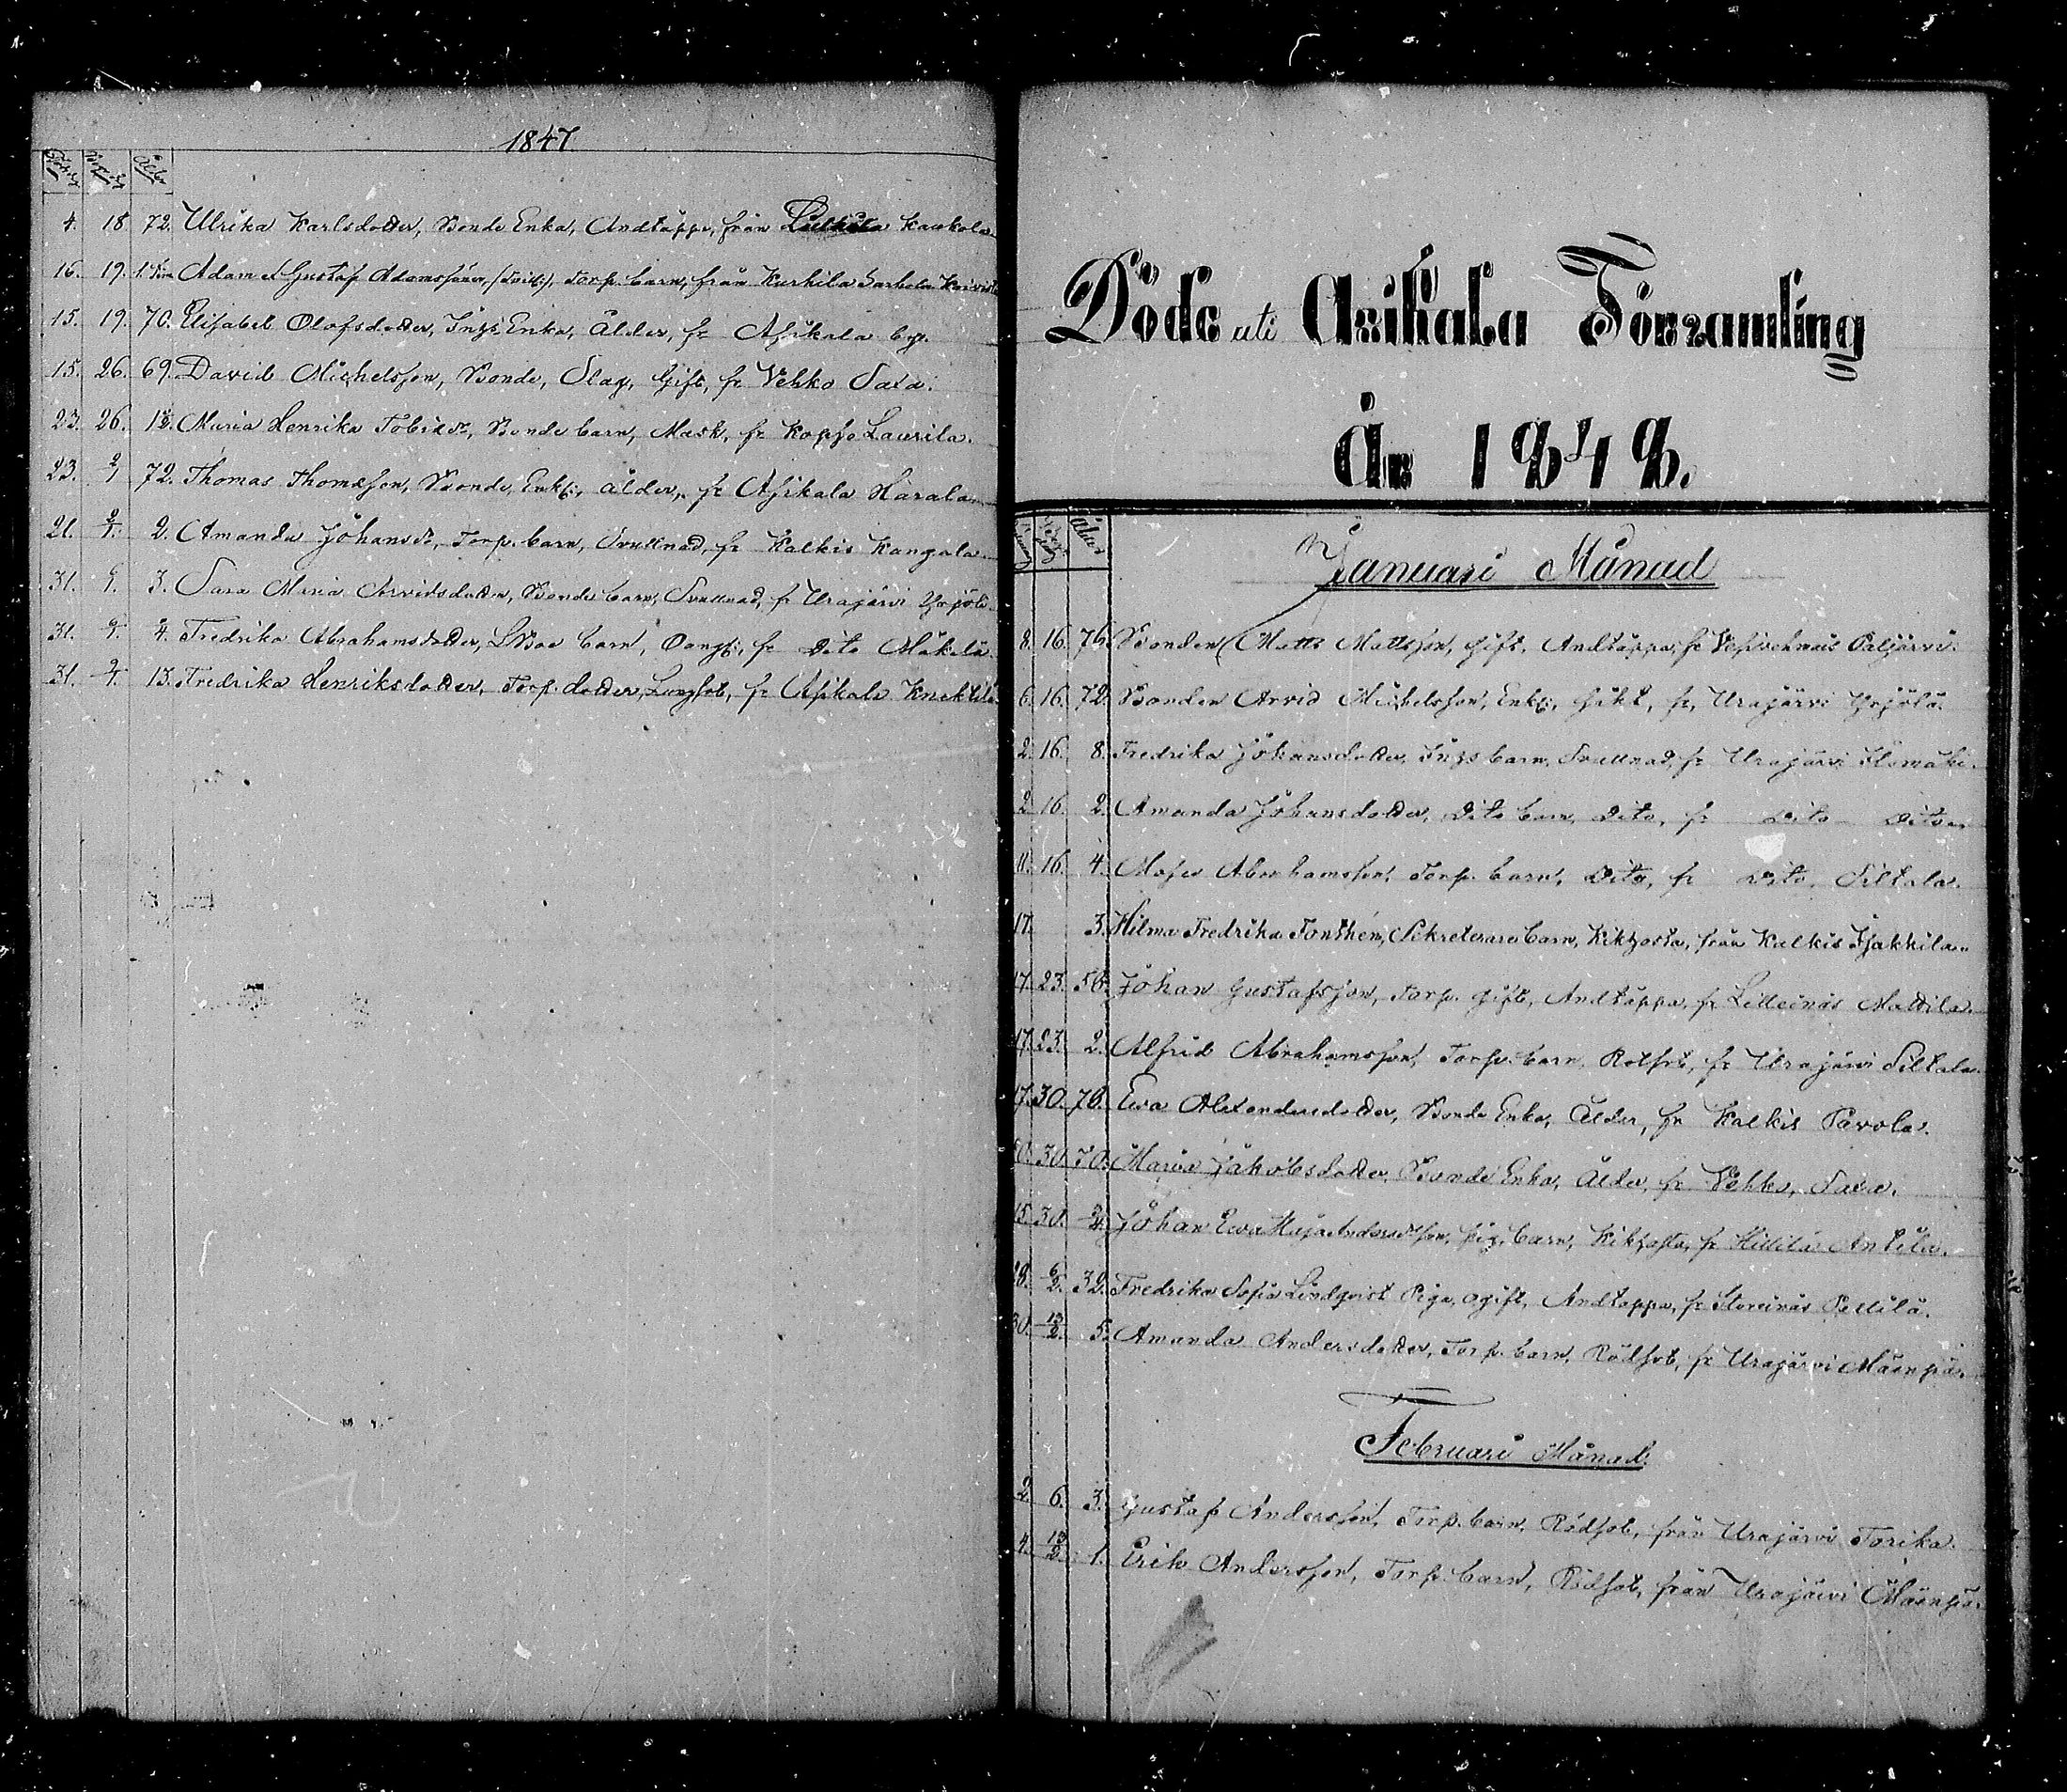 1847
4. 18. 72. Ulrika Karlsdotter, Bonde Enka, Andtäppa, från Kaukola
16. 19. Adam & Gustaf Adamssöner, Torp. barn, från Kurhila
15. 19. 70. Elisabet Olofsdotter, Inhs Enka, Ålder, fr Asikala by.
15. 26. 69. David Michelsson, Bonde, Slag, Gift, fr Vehko Saxa.
23. 26. 1½. Maria Henrika Tobiasdr, Bonde barn, Mask, fr Kopso Laurila.
23. 2/1 72. Thomas Thomasson, Bonde, Enkl:, ålder, fr Asikala Harala
21. 2/1 2. Amanda Johansdr, Torp. barn, Svullnad, fr Kalkis Kangala
31. 9/1. 3. Sara Maria Arvidsdotter, Bonde barn, Svullnad, fr Urajärvi Yrjölä
31. 9/1. 4. Fredrika Abrahamsdotter, barn, fr Dito Mäkelä.
31. 9/1. 13. Fredrika Henriksdotter, Torp. dotter, Lungsot, fr Asikala Knektilä
Döde uti Asikala Församling
År 1848.
ålder
Januari Månad
8. 16. 76. Bonden Matts Mattsson, gift, Andtäppa, fr Vesivehmais Paljärvi.
6. 16. 72. Bonden Arvid Michelsson, Enkl:, Gikt, fr, Urajärvi Yrjölä.
2. 16. 8. Fredrika Johansdotter, Inhs barn, Svullnad, fr Urajärvi Ilomäki.
2. 16. 2. Amanda Johansdotter, Dito barn, Dito, fr Dito Dito
11. 16. 4. Moses Abrahamsson, Torp. barn, Dito, fr Dito, Siltala.
17. 3. Hilma Fredrika Forsthén, Sekreterare barn, Kikhosta, från Kalkis
17. 23. 56. Johan Gustafsson, Torp. gift, Andtäppa, fr Lilleinäs Mattila.
17. 23. 2. Alfrid Abrahamsson, Torp. barn, Rötsot, fr Urajärvi Siltala.
17. 30. 76. Eva Alexandersdotter, Bonde Enka, Ålder, fr Kalkis Pavola.
30. 70. Maria Jakobsdotter, Bonde Enka, Ålder, fr Vehko, Saxa.
15. 30. Johan Ewa Maja Andersdrson, Pig. barn, Kikhosta, fr Hillilä Anttila.
28. 6/2. 32. Fredrika Sofia Lindqvist Piga, ogift, Andtäppa, fr Storeinäs Pellilä.
30. 13/2. 5. Amanda Andersdotter, Torp. barn, Rödsot, fr Urajärvi Mäenpää.
Februari Månad.
2. 6. 3. Gustaf Andersson, Torp. barn, Rödsot, från Urajärvi Torika.
4. 13/2. 1. Erik Andersson, Torp. barn, Rödsot, från Urajärvi Mäenpää.